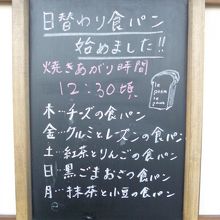 日替わり食パン
始めました!!
焼きあがり時間
12:30頃
木…チーズの食パン
金…クルミとレーズンの食パン
土…紅茶とりんごの食パン
日…黒ごまおさつの食パン
月…抹茶と小豆の食パン